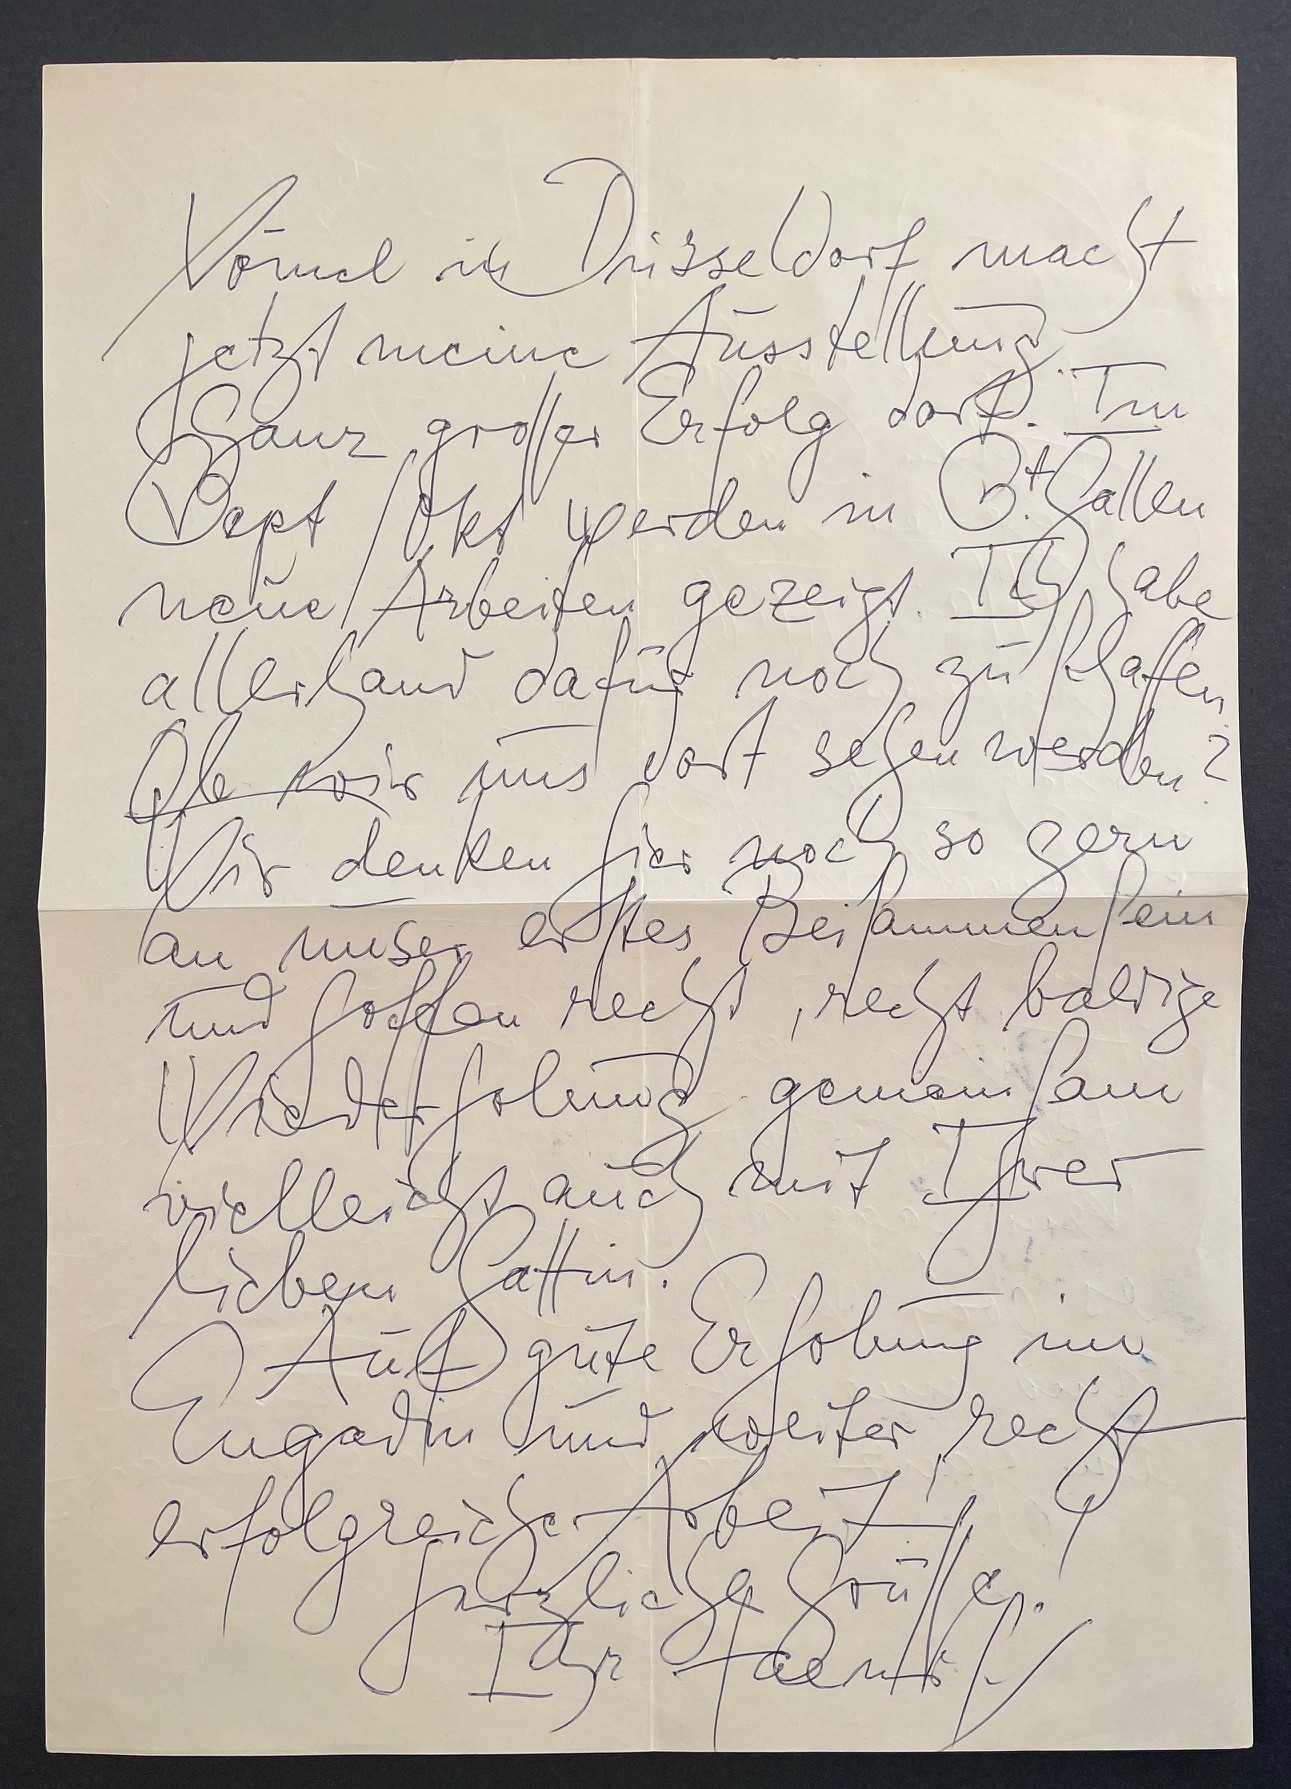 Vömel in Düsseldorf macht
jetzt meine Ausstellung.
Ganz großer Erfolg dort. Im
Sept/Okt werden in St. Gallen
neue Arbeiten gezeigt. Ich habe
allerhand dafür noch zu schaffen.
Ob wir uns dort sehen werden?
Wir denken hier noch so gern
an unser erstes Beisammensein
und hoffen recht, recht baldige
Wiederholung gemeinsam
vielleicht auch mit Ihrer
lieben Gattin.
Auf gute Erholung im
Engadin und weiter, recht
erfolgreiche Arbeit!
herzliche Grüße,
Ihr